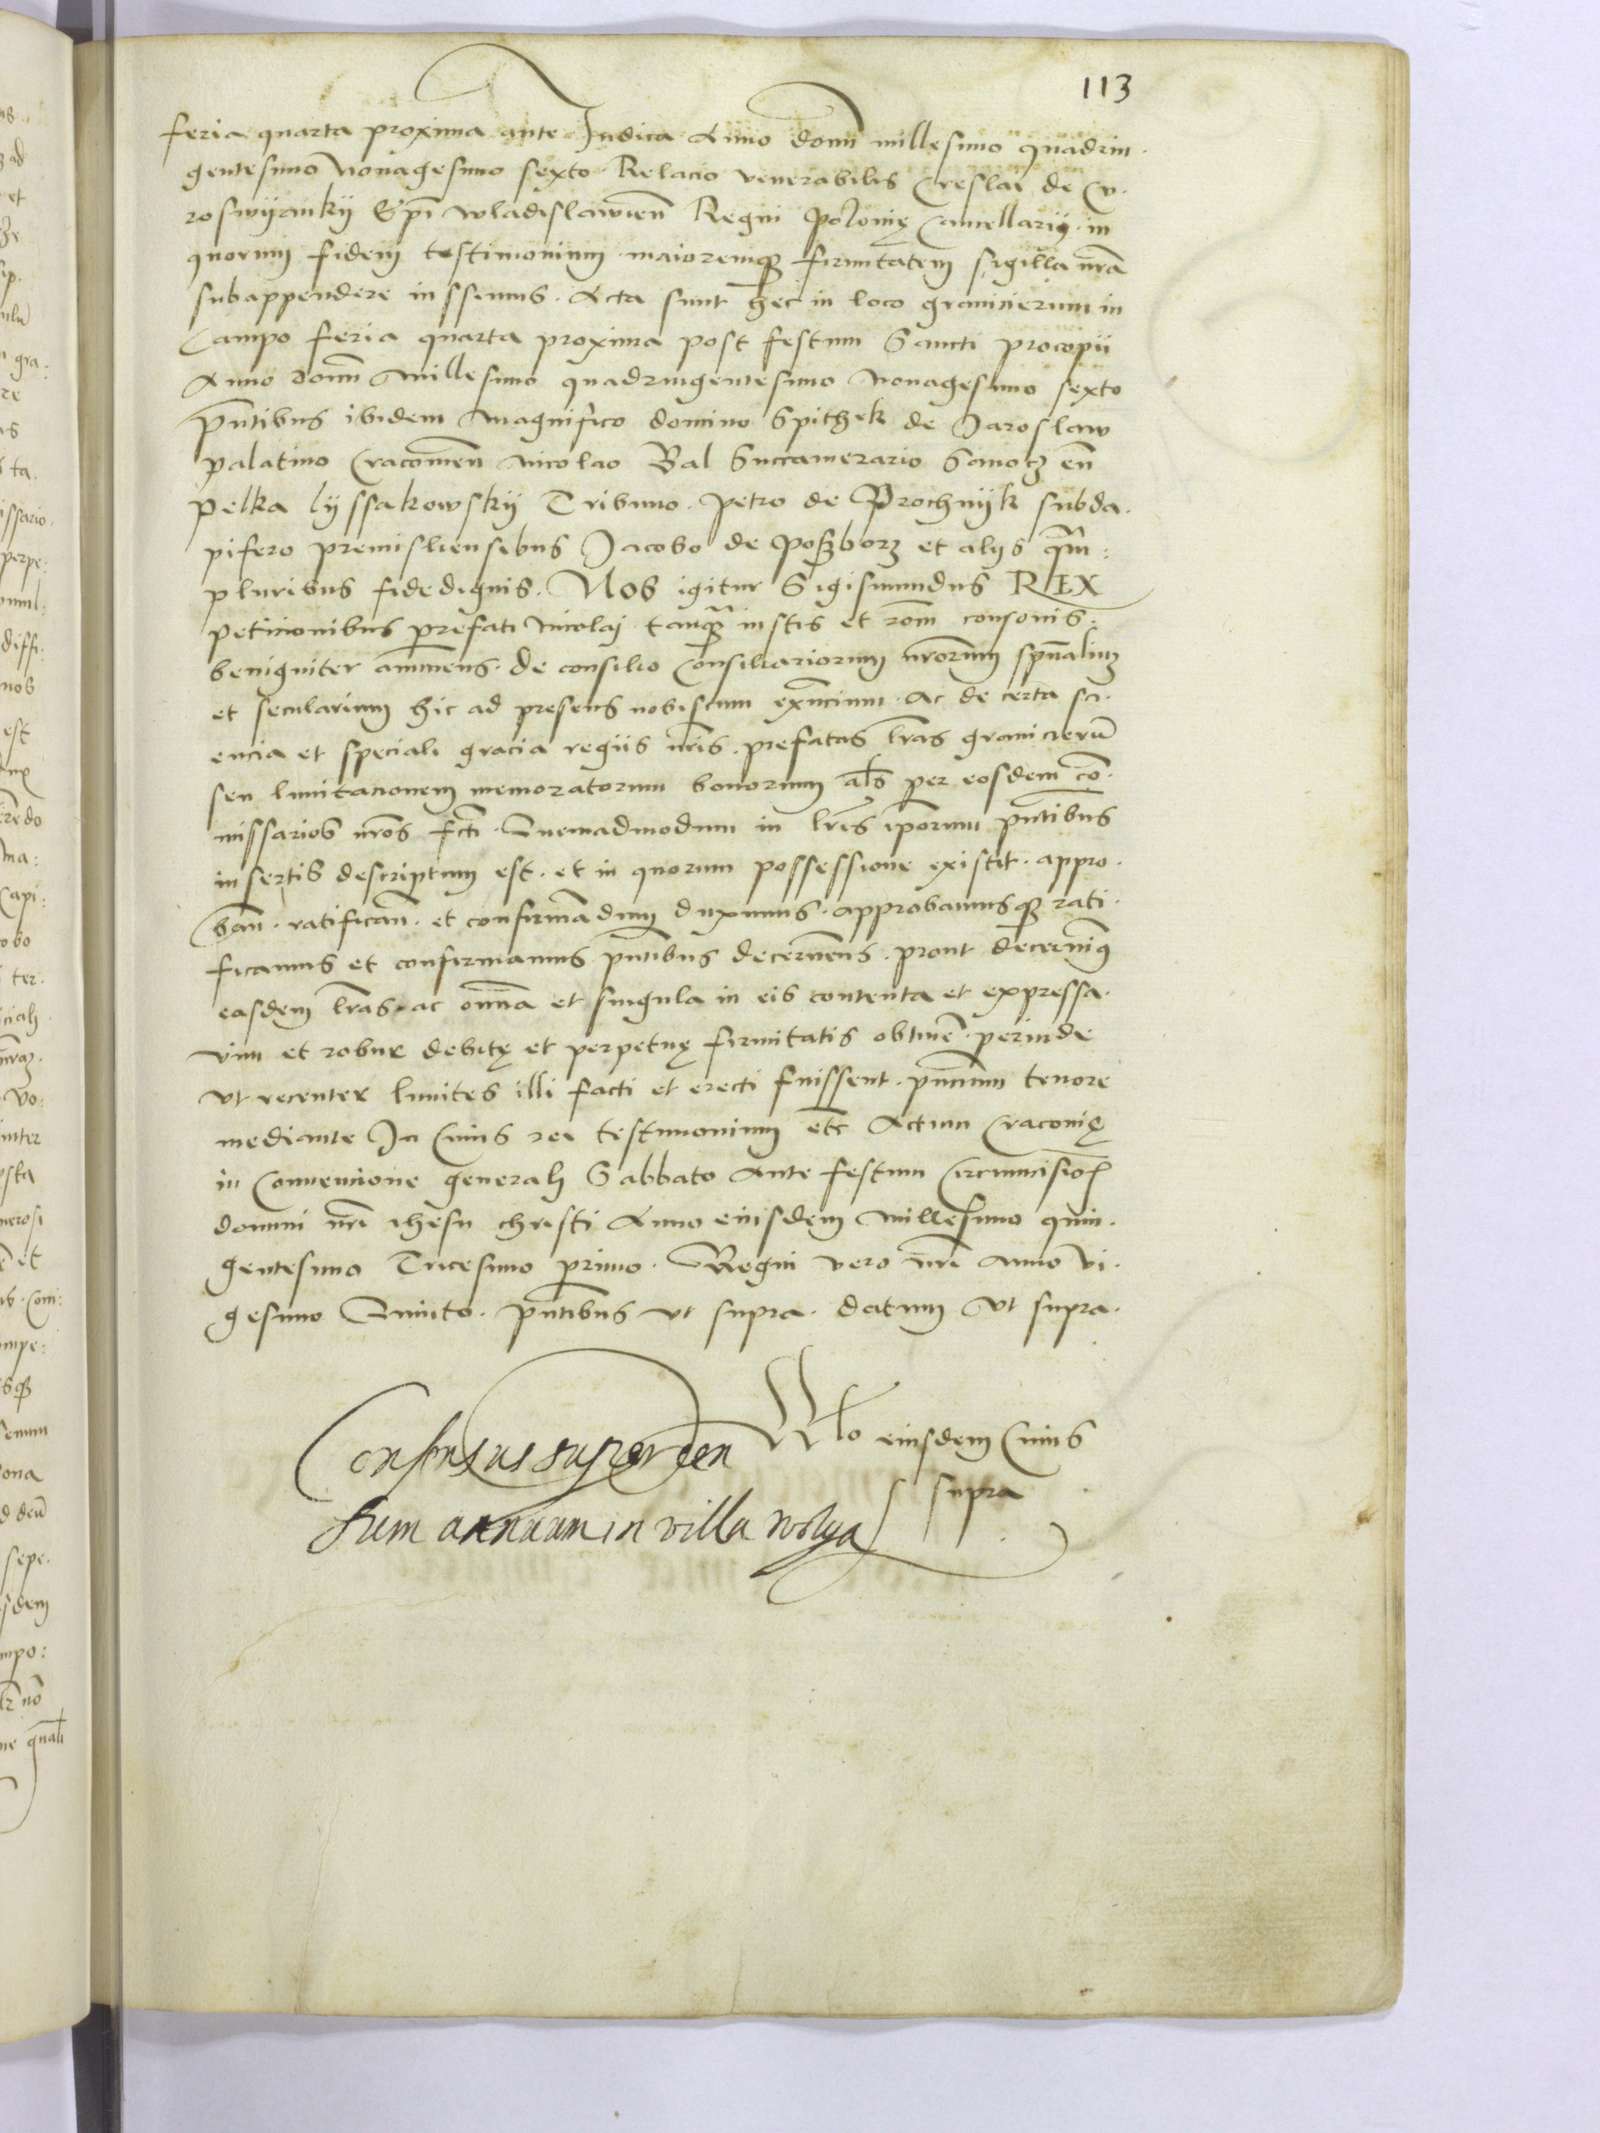 113
feria quarta proxima ante Judica Anno domi millesimo quadrin.
gentesimo Nonagesimo sexto. Relacio venerabilis Creslai de Cu.
roswyanky Epi wladislawien Regni Polonię Cancellarii. in
quorum fidem testimonium maioremque firmitatem sigilla nra
subappendere iussimus. Acta sunt hec in loco granicierum in
Campo feria quarta proxima post festum Sancti procopii
Anno domi Millesimo quadringentesimo Nonagesimo sexto
pntibus ibidem Magnifico domino Spithek de Jaroslaw
palatino Cracovien Nicolao Bal Succamerario Sanoczen
Pelka lyssakowsky Tribuno. petro de Prochnyk subda.
pifero premisliensibus Jacobo de et alys qm:
pluribus fidedignis. Nos igitur Sigismundus REX
peticionibus prefati Nicolaj tanq iustis et rom consonis.
benigniter annuens. de consilio Consiliariorum nrorum spualium
et secularium hic ad presens nobiscum exncium. Ac de certa sci.
encia et speciali gracia regiis nris. prefatas lras granicierum
seu limitacionem memoratorum bonorum als per eosdem co.
missarios nros fcti. Quemadmodum in lris iporum pntibus
insertis descriptum est. et in quorum possessione existit. appro.
ban. ratifican. et confirmadum duximus. approbamusque rati.
ficamus et confirmamus pntibus decernens. prout decernimus
easdem lras. ac omnia et singula in eis contenta et expressa.
vim et robur debitę et perpetuę firmitatis obtine. perinde
ut recenter limites illi facti et erecti fuissent. pncium tenore
mediante In Cuius rei testimonium etc Actum Cracovię
in Convencione generali Sabbato Ante festum Circumcisionis
domini nri ihesu christi Anno eiusdem Millesimo quin.
gentesimo Tricesimo primo. Regni vero nri anno vi.
gesimo Quinto. pntibus ut supra. datum ut supra.
Rlo eiusdem Cuius
supra
Consensus super cen
sum annuum in villa wolya